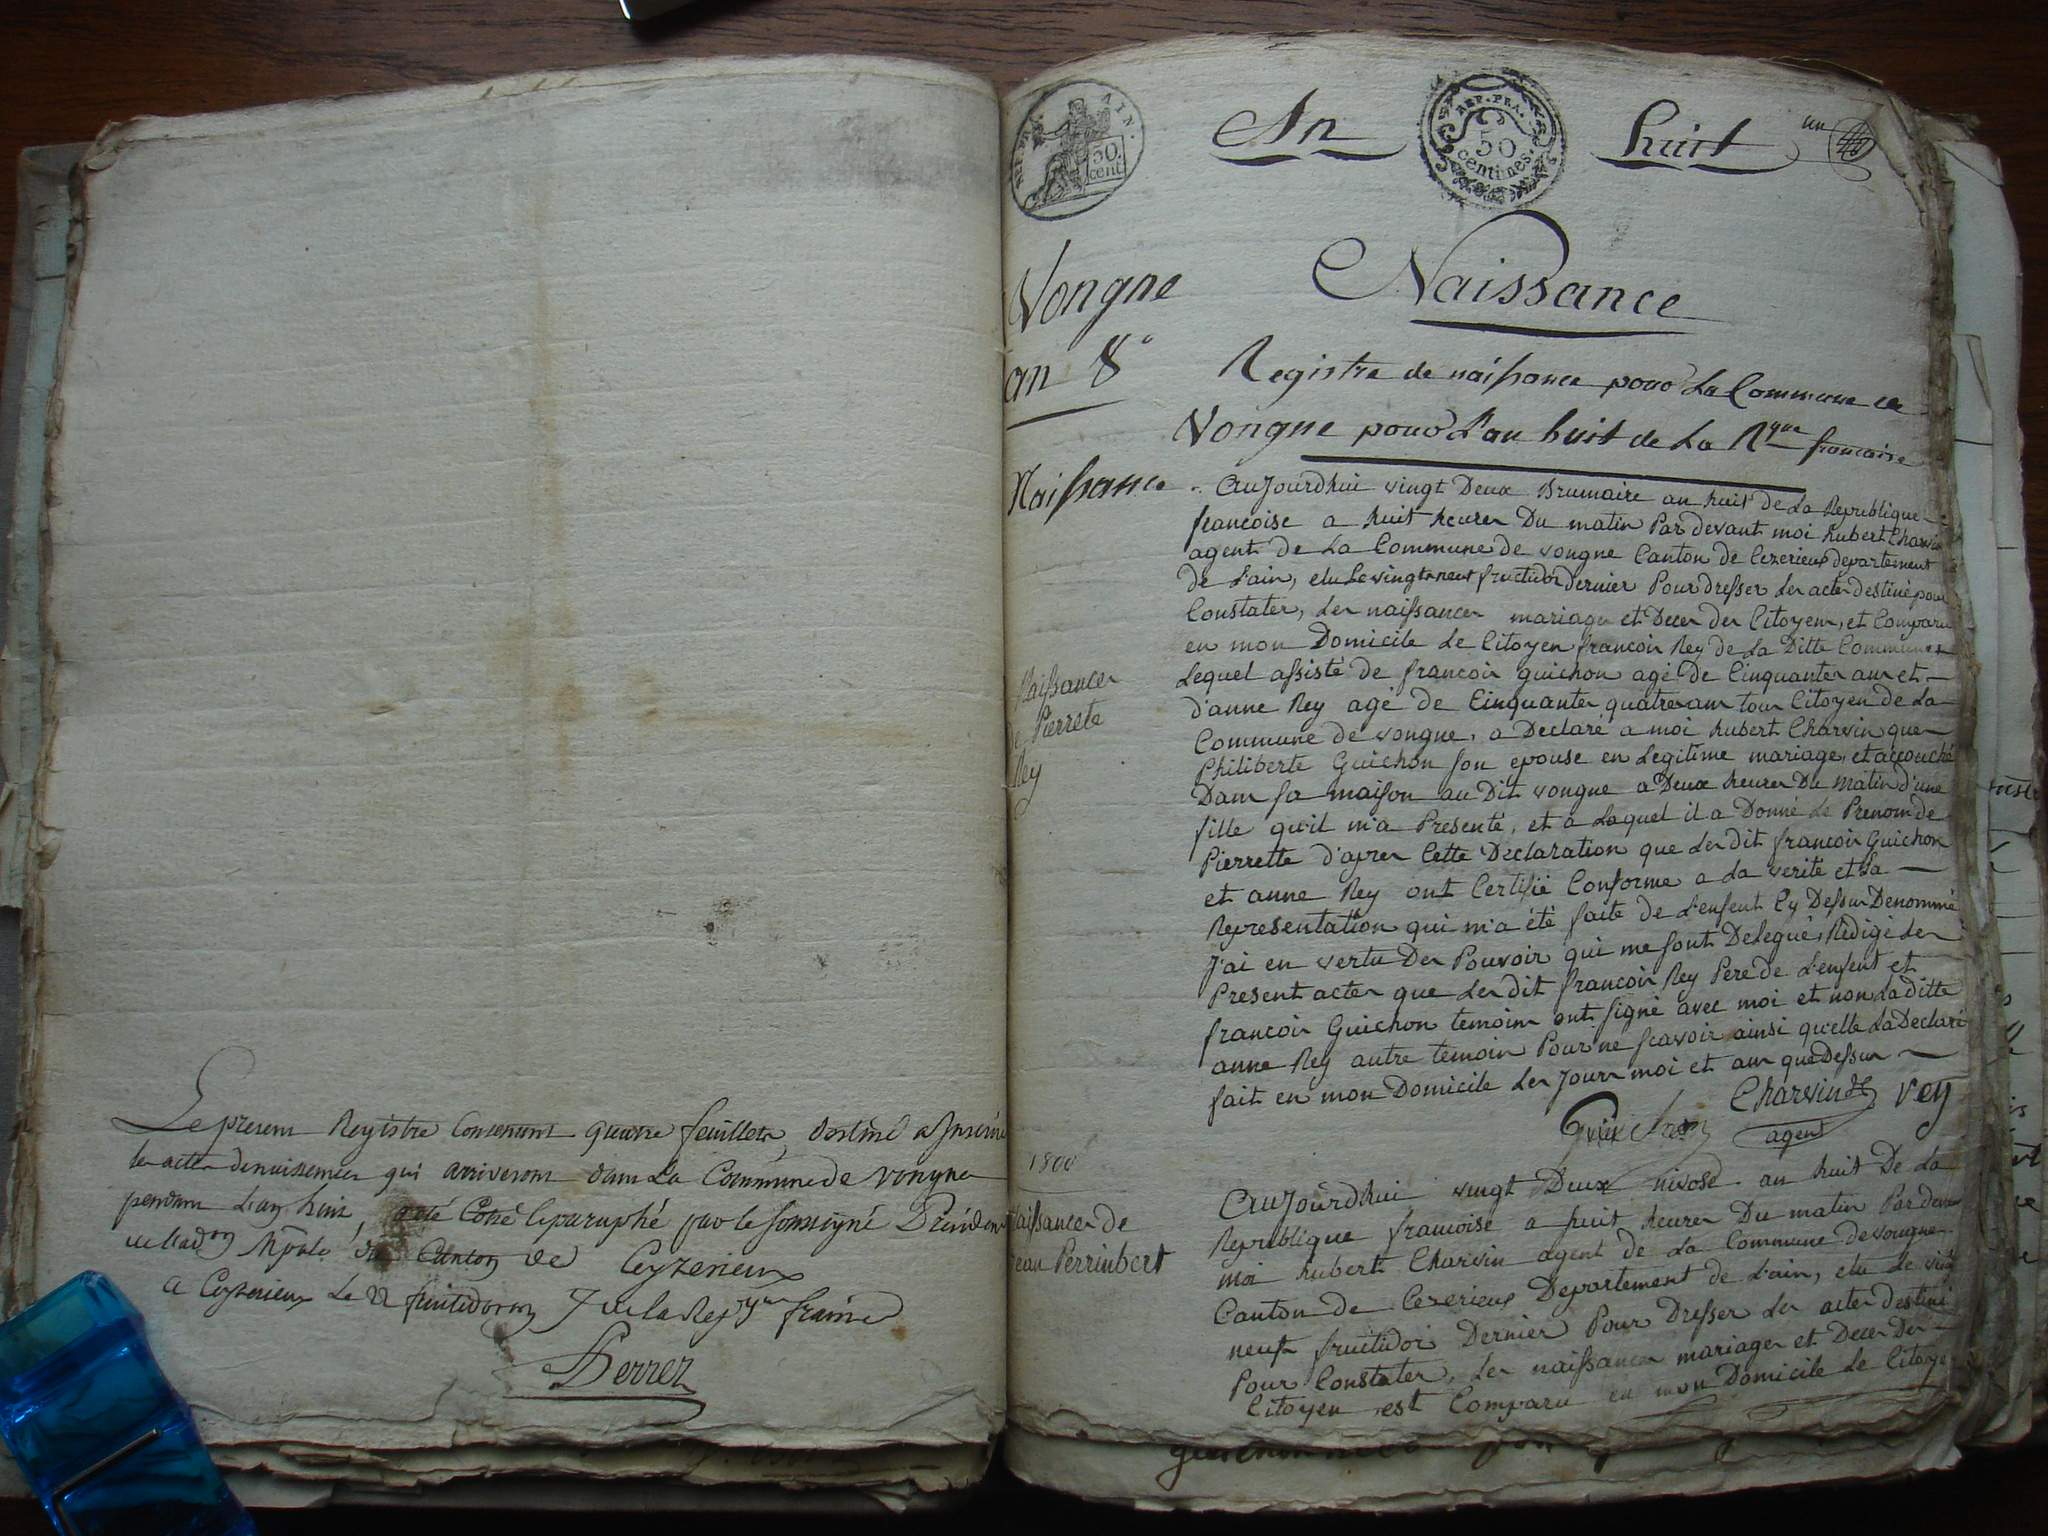 Le present Registre Contenant quatre feuillets, destiné a Inserire
les actes de naissences qui arriveront dans La Commune de vongne
pendant L'an huit, a été Cotté et paraphé par le soussigné Président
de L'adon Mpale du Canton de Ceyzerieux
a Ceyzerieux Le 22 fructidor an 7 de la Repque française
Perret
REP. FRA. AIN.
50 cent.
An
REP. FRA.
50
centimes.
huit
un
Vongne
an 8e
Naissance
Naissance
Registre de naissance pour La Commune de
Vongne pour L'an huit de La Rque francaise
Aujourdhui vingt Deux Brumaire an huit de La Republique
francoise a huit heures Du matin Par devant moi hubert Charvin
agent de La Commune de vongne Canton de Cezerieux departement
de L'ain, elu Le vingt neuf fructidor dernier Pour dresser Les actes destiné pour
Constater, Les naissances mariages et Deces des Citoyens, et Comparu
en mon Domicile Le Citoyen francois Rey de La Ditte Commune
Lequel assisté de francois guichon agé de Cinquantes ans et
d'anne Rey agé de Cinquantes quatres ans tous Citoyen de La
Commune de vongne, a Declaré a moi hubert Charvin que
Philiberte Guichon son epouse en Legitime mariage, et accouché
Dans sa maison au Dit vongne a Deux heures Du Matin d'une
fille qu'il m'a Presenté, et a Laquel il a Donné Le Prenom de
Pierrette d'apres Cette Declaration que Les dit francois Guichon
et anne Rey ont Certifié Conforme a La verité et La
Representation qui m'a été faite de L'enfent Cy Dessus Denommé
J'ai en vertu Des Pouvoir qui me sont Delegué, Rédigé Les
Present actes que Les dit francois Rey Pere de L'enfent et
francois Guichon temoins ont signé avec moi et non La ditte
anne Rey autre temoin Pour ne scavoir ainsi qu'elle La Declaré
fait en mon Domicile Les Jours moi et ans que Dessus
Charvin rey
Guichon agent
Naissances
de Pierrete
Rey
1800
Naissances de
Jean Perrinbert
Aujourdhui vingt Deux nivose an huit De La
Republique francoise a huit heures Du matin Par devan
moi hubert Charvin agent de La Commune de vongne
Canton de Cezerieux Departement de L'ain, elu Le vint
neuf fructidor Dernier Pour Dresser Les actes destiné
Pour Constater, Les naissances mariages et Deces Des
Citoyen est Comparu en mon Domicile Le Citoyen